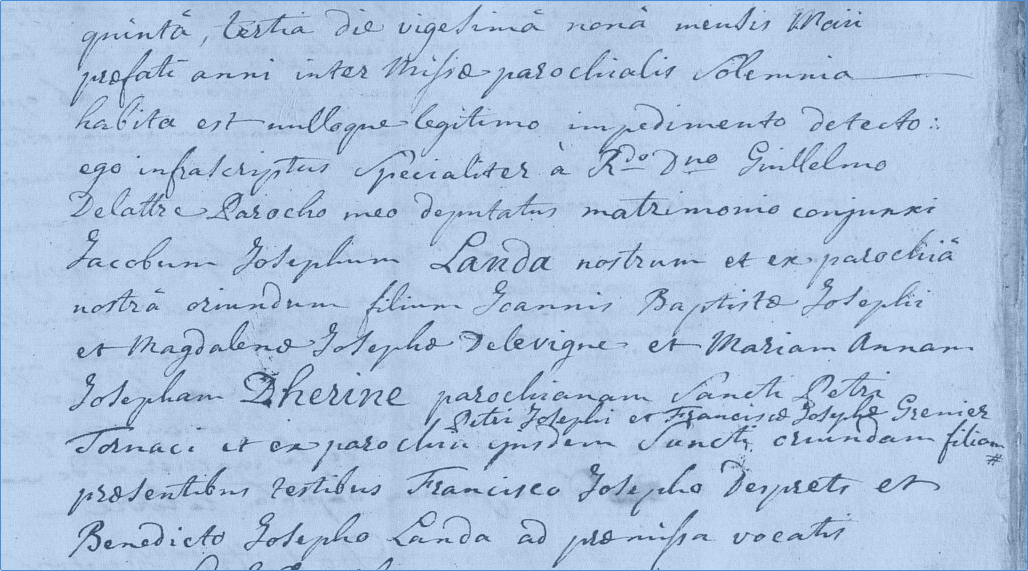 quintâ, tertia die vigesimâ nonâ mensis Maii
præfati anni inter Missæ parochialis Solemnia
habita est nulloque legitimo impedimento detecto:
ego infrascriptus Specialiter à Rdo Dno Guillelmo
Delattre Parocho meo deputatus matrimonio conjunxi
Jacobum Josephum Landa nostrum et ex parochiâ
nostrâ oriundum filium Joannis Baptistæ Josephi
et Magdalenæ Josephæ Delevigne et Mariam Annam
Josepham Dherine parochianam Sancti Petri
Petri Josephi et Franciscæ Josephæ Grenier
Tornaci et ex parochiâ ejusdem Sancti oriundam filiam
#
præsentibus testibus Francisco Josepho Desprets et
Benedicto Josepho Landa ad præmissa vocatis